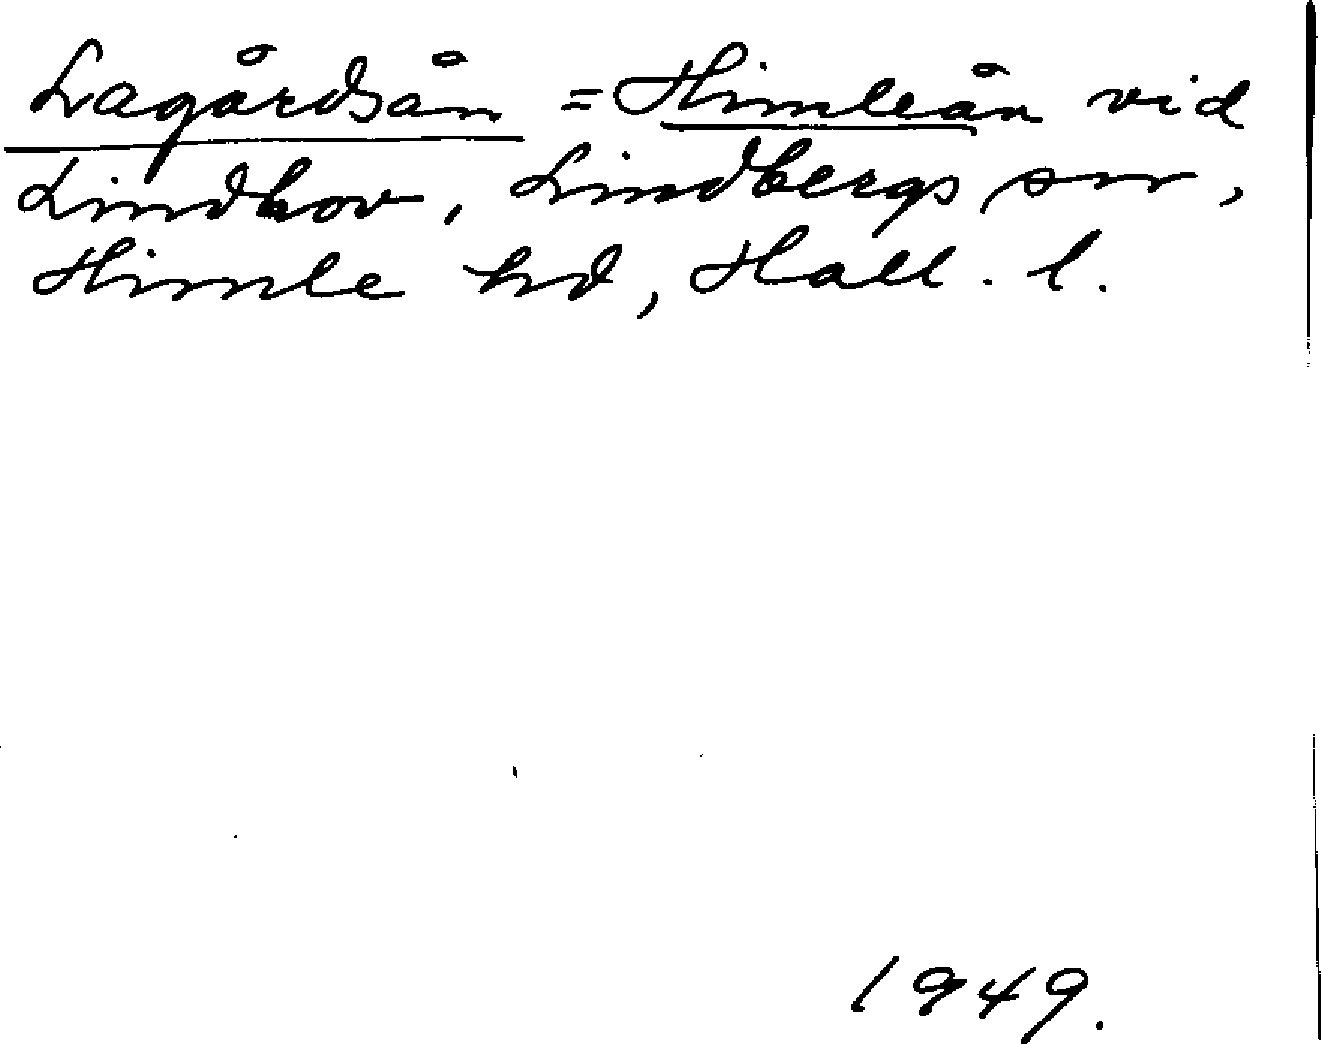 Lagårdsån = Himleån vid
Lindhov, Lindbergs sn,
Himle hd, Hall. l.
1949.